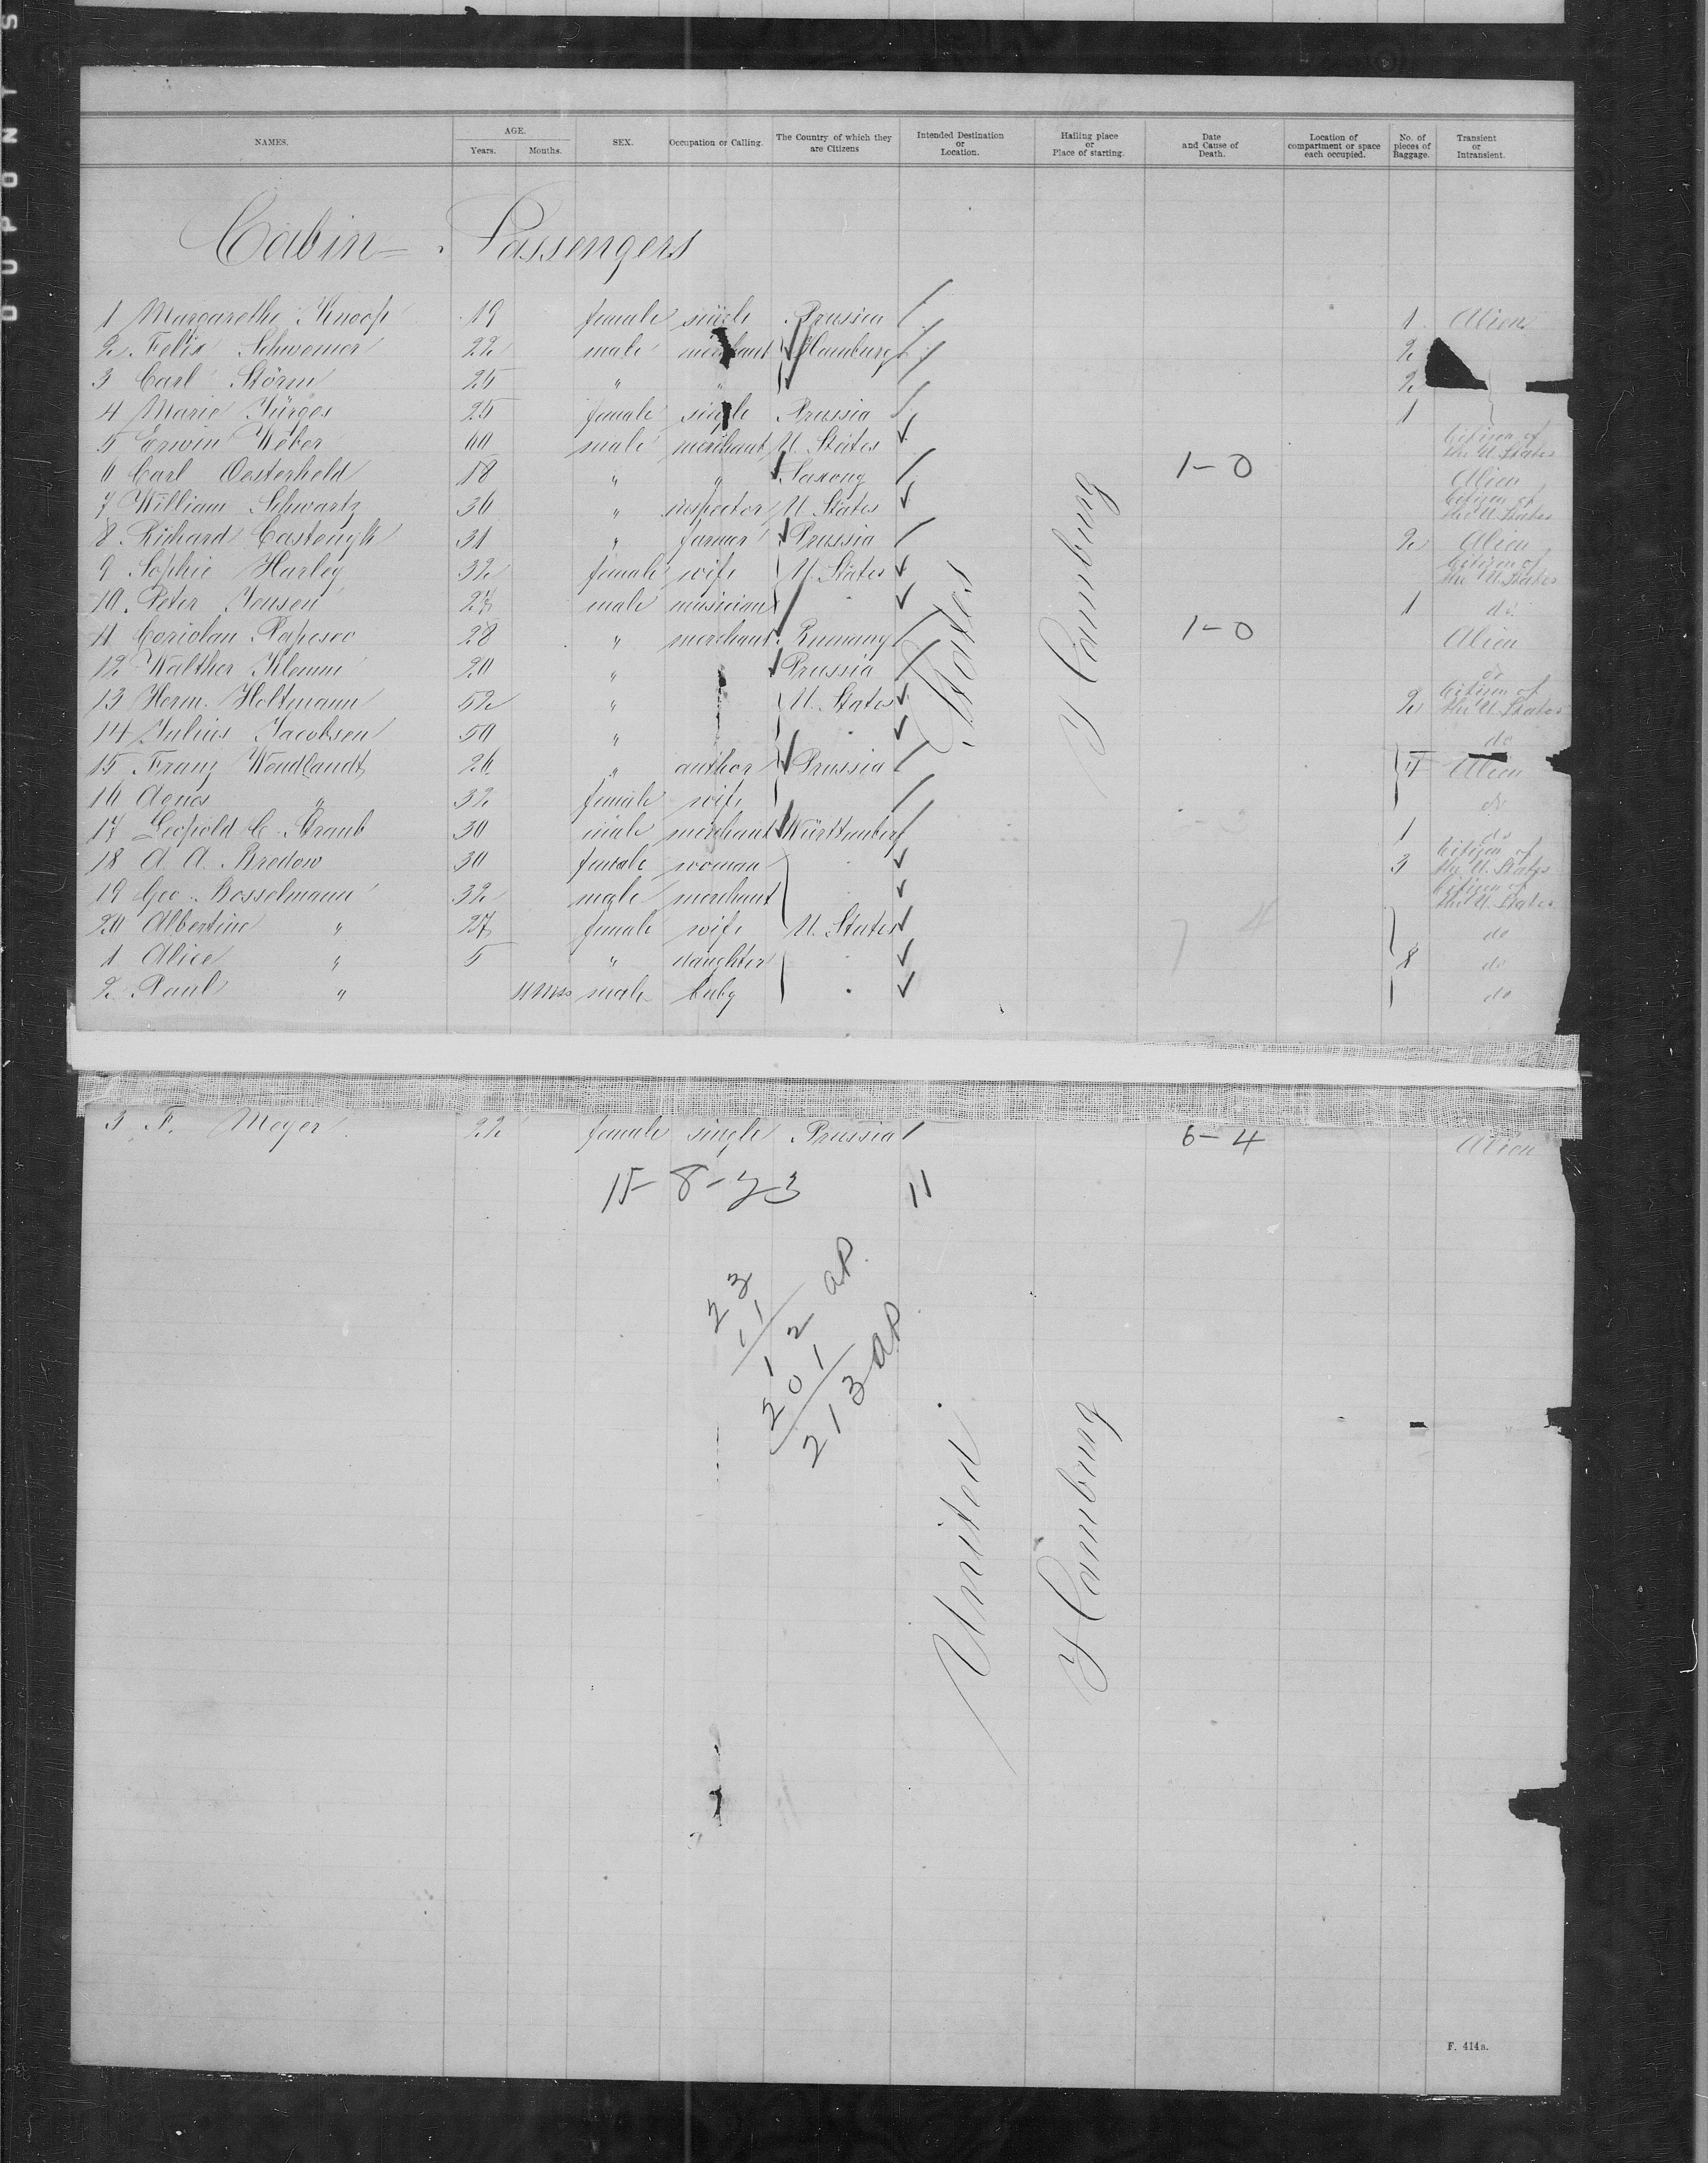 DUPONT S
NAMES. AGE. Years. Months. SEX. Occupation or Calling. The Country of which they are Citizens Intended Destination or Location. Hailing place or Place of starting. Date and Cause of Death. Location of compartment or space each occupied. No. of pieces of Baggage. Transient or Intransient.
Cabin - Passengers
1 Margarethe Knoop 19 female single Prussia 1 Alien
2 Felix Schwemer 22 male merchant Hamburg 2
3 Carl Störm 25 " " 2
4 Marie Jürges 25 female single Prussia 1
5 Erwin Weber 60 male merchant U. States Citizen of the U. States
6 Carl Oesterheld 18 " " Saxony 1-0 Alien
7 William Schwartz 36 " inspector U. States Citizen of the U. States
8 Richard 31 " farmer Prussia 2 Alien
9 Sophie Harley 32 female wife U. States Citizen of the U. States
10 Peter Jensen 27 male musician 1 do
11 Coriolan Popesco 28 " merchant Rumany 1-0 Alien
12 Walther Klemm 20 " Prussia do
13 Herm. Holtmann 52 " U. States 2 Citizen of the U. States
14 Julius Jacobsen 50 " do
15 Franz Wendlandt 26 " author Prussia 4 Alien
16 Agnes " 32 female wife do
17 Leopold C. Straub 30 male merchant Württemberg 1 do
18 A. A. Bredow 30 female woman 3 Citizen of the U. States
19 Geo. Bosselmann 32 male merchant Citizen of the U. States
20 Albertine " 27 female wife U. States do
1 Alice " 5 " daughter 8 do
2 Paul " 11 mos male baby do
States
Hamburg
3 F. Meyer 22 female single Prussia 6-4 Alien
15-8-23 11
23
11
12 aP.
201
213 aP
United
Hamburg
F. 414a.